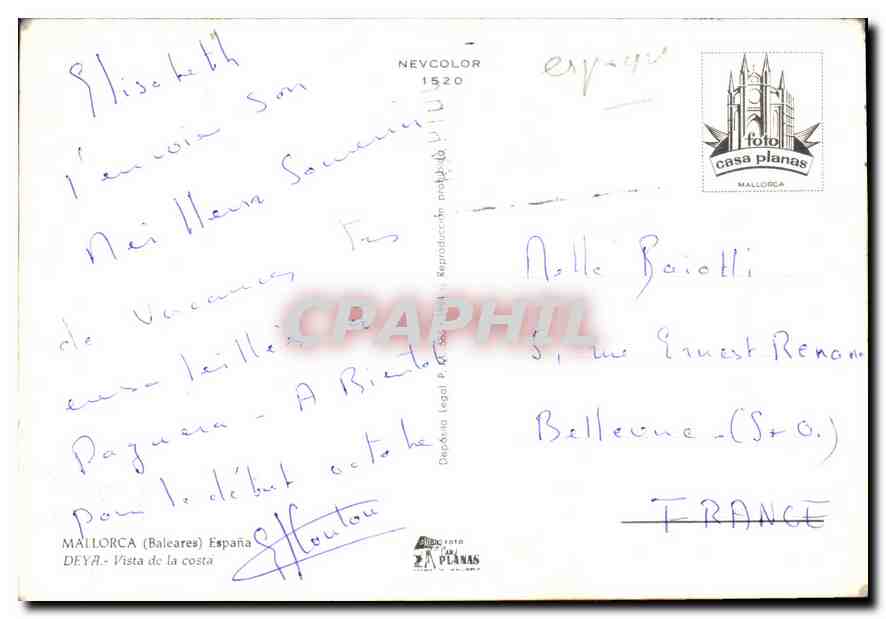 Elisabeth
t'envoie son
Meilleur Souvenir
de Vacances Très
ensoleillées à
Paguera - A Bientôt
pour le début octobre
MALLORCA (Baleares) España
DEYA.- Vista de la costa
NEVCOLOR
1520
Reproducción prohibida
Depósito Legal
FOTO
CASA
PLANAS
espagne
foto
casa planas
MALLORCA
Melle Baiotti
5, rue Ernest Renan
Bellevue - (S & O.)
FRANCE
CPAPHIL